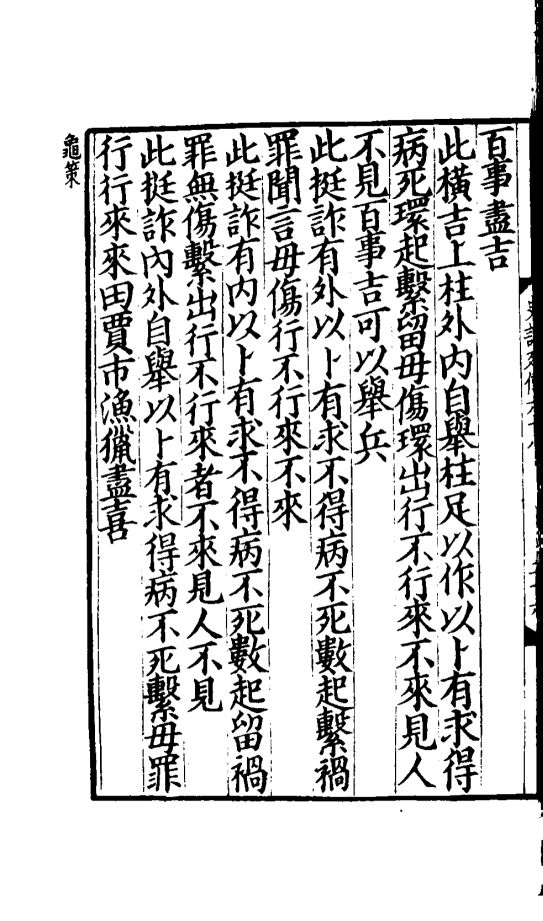 百事盡吉
此橫吉上柱外內自舉柱足以作以卜有求得
病死環起繫留毋傷環出行不行來不來見人
不見百事吉可以舉兵
此挺詐有外以卜有求不得病不死數起繫禍
罪聞言毋傷行不行來不來
此挺詐有內以卜有求不得病不死數起留禍
罪無傷繫出行不行來者不來見人不見
此挺詐內外自舉以卜有求得病不死繫毋罪
行行來來田賈市漁獵盡喜
龜策